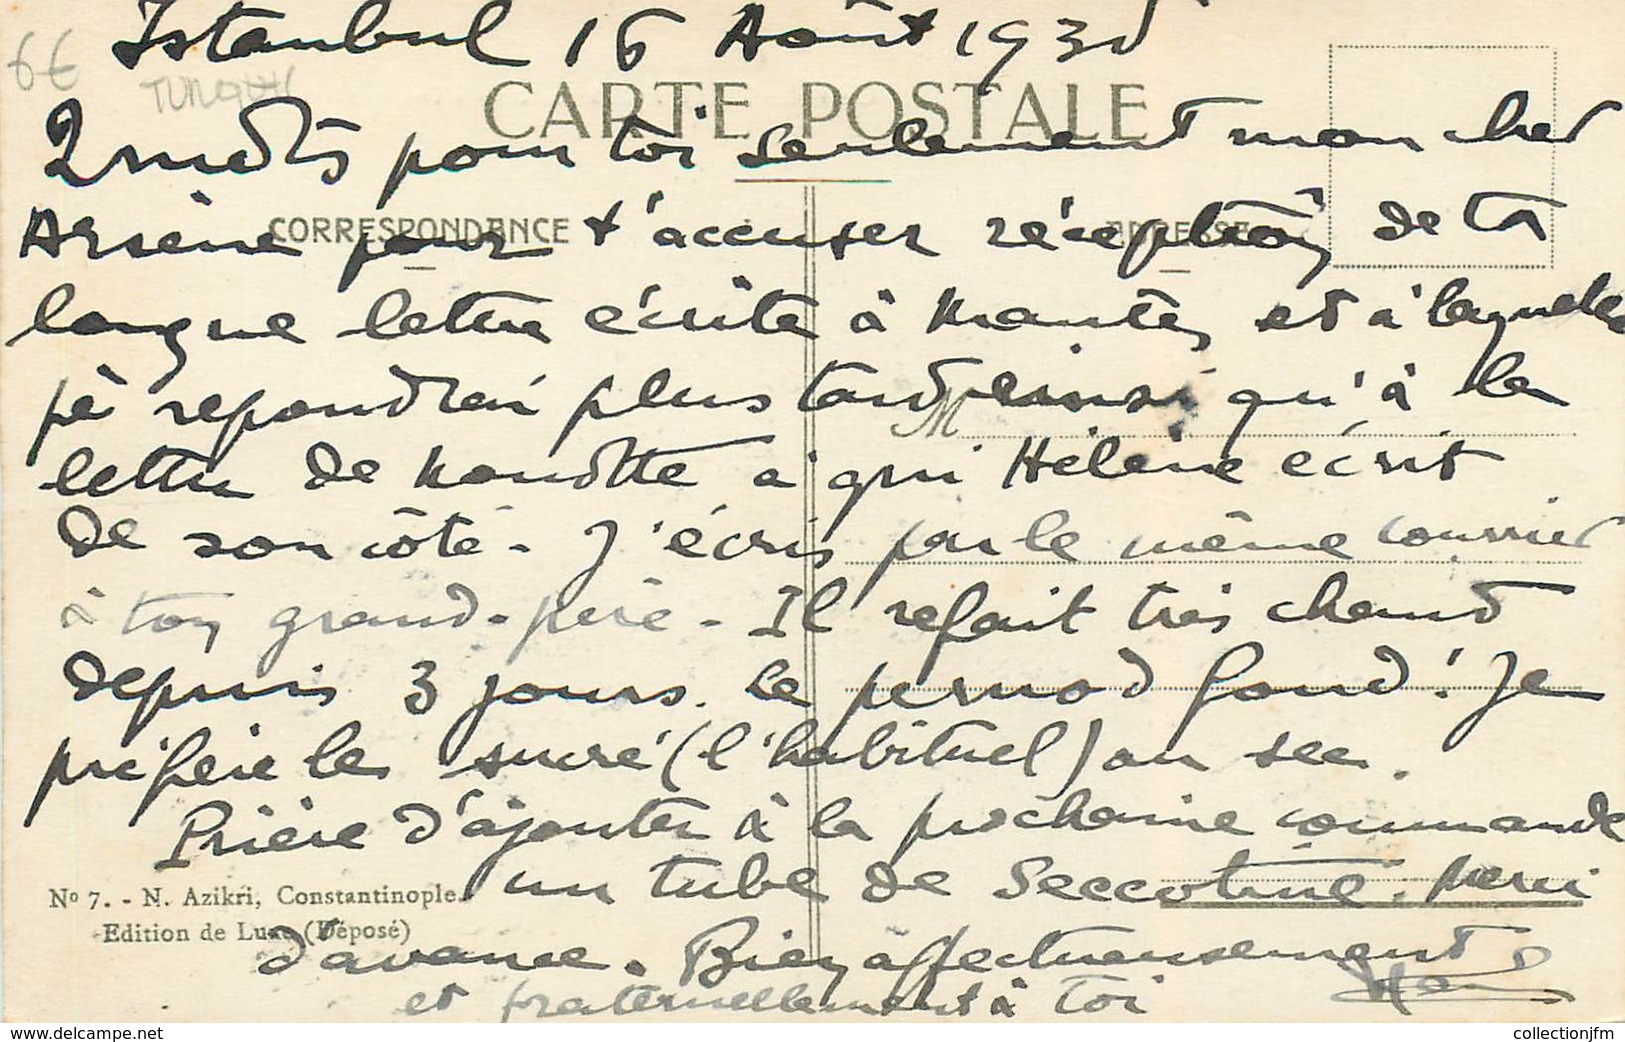 6€
TURQUIE
Istanbul 16 Août 193
CARTE POSTALE
2 mots pour toi seulement mon cher
CORRESPONDANCE
ADRESSE
Arsène pour t'accuser réception de ta
longue lettre écrite à Nantes et à laquelle
je repondrai plus tard ainsi qu'à la
M
lettre de Nanotte à qui Hélène écrit
de son côté - J'écris par le même courrier
à ton grand-père - Il refait très chaud
depuis 3 jours. Le pernod fond ! Je
préfère le sucré (l'habituel) au sec.
Prière d'ajouter à la prochaine commande
un tube de Seccotine. Merci
No 7. - N. Azikri, Constantinople.
Edition de Luxe (Déposé)
d'avance. Bien affectueusement
et fraternellement à toi
www.delcampe.net
collectionjfm